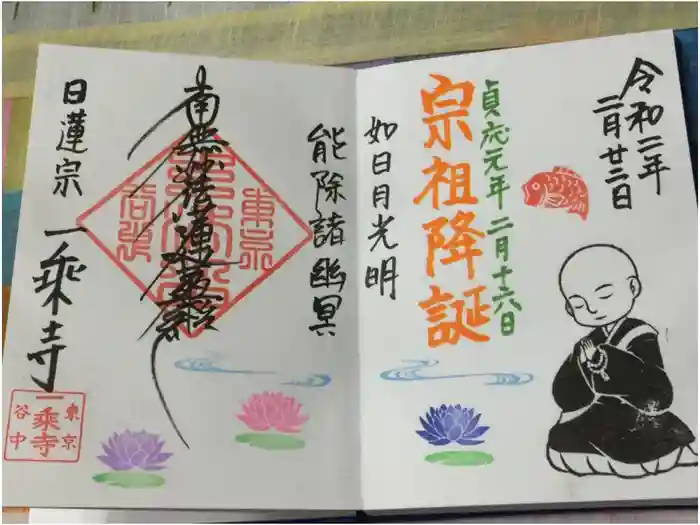 令和二年
二月廿二日
貞応元年 二月十六日
宗祖降誕
如日月光明
能除諸幽冥
南無妙法蓮華経
日蓮宗 一乗寺
東京
谷中
東京
一乗寺
谷中